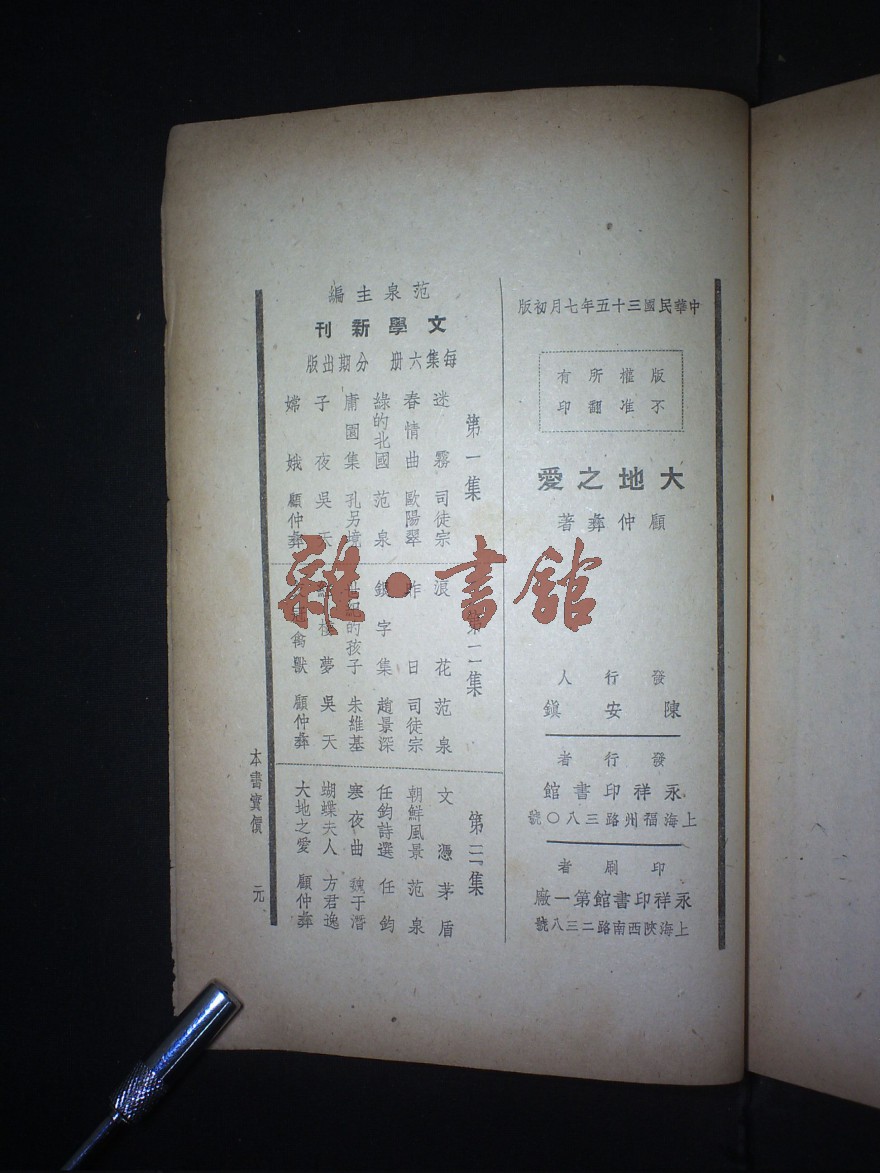 中華民國三十五年七月初版
版權所有
不准翻印
大地之愛
顧仲彝著
發行人
陳安鎮
發行者
永祥印書館
上海福州路三八〇號
印刷者
永祥印書館第一廠
上海陝西南路二三八號
范泉主編
文學新刊
每集六册 分期出版
第一集
迷霧 司徒宗
春情曲 歐陽翠
綠的北國 范泉
庸園集 孔另境
子夜 吳天
嫦娥 顧仲彝
第二集
浪花 范泉
昨日 司徒宗
銀字集 趙景深
世紀的孩子 朱維基
樓夢 吳天
禽獸 顧仲彝
第三集
文憑 茅盾
朝鮮風景 范泉
任鈞詩選 任鈞
寒夜曲 魏于潛
蝴蝶夫人 方君逸
大地之愛 顧仲彝
本書實價 元
雜·書館